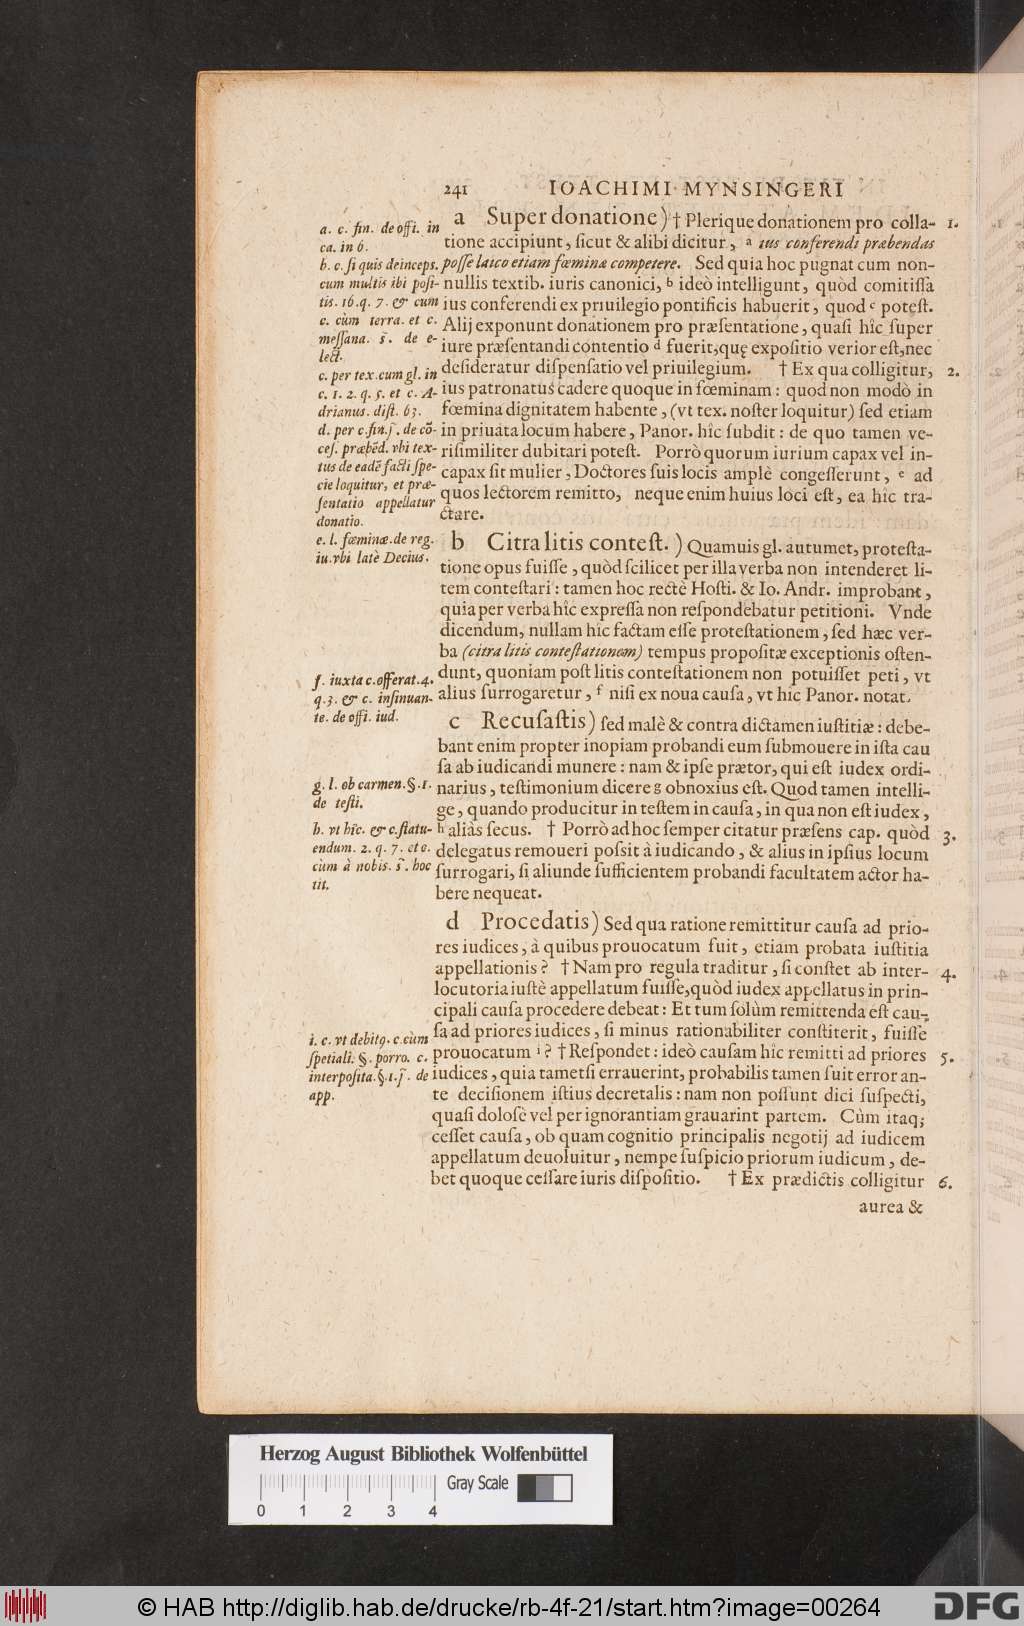 241 IOACHIMI MYNSINGERI
a Super donatione) † Plerique donationem pro colla- 1.
tione accipiunt, ſicut & alibi dicitur, a ius conferendi præbendas
poſſe laico etiam fœminæ competere. Sed quia hoc pugnat cum non-
nullis textib. iuris canonici, b ideò intelligunt, quòd comitiſſa
ius conferendi ex priuilegio pontificis habuerit, quod c poteſt.
Alij exponunt donationem pro præſentatione, quaſi hîc ſuper
iure præſentandi contentio d fuerit, quę expoſitio verior eſt, nec
deſideratur diſpenſatio vel priuilegium. † Ex qua colligitur, 2.
ius patronatus cadere quoque in fœminam: quod non modò in
fœmina dignitatem habente, (vt tex. noſter loquitur) ſed etiam
in priuata locum habere, Panor. hîc ſubdit: de quo tamen ve-
riſimiliter dubitari poteſt. Porrò quorum iurium capax vel in-
capax ſit mulier, Doctores ſuis locis amplè congeſſerunt, e ad
quos lectorem remitto, neque enim huius loci eſt, ea hîc tra-
ctare.
a. c. fin. de offi. in
ca. in 6.
b. c. ſi quis deinceps.
cum multis ibi poſi-
tis. 16. q. 7. & cum
c. cùm terra. et c.
meſſana. s̃. de e-
lect.
c. per tex. cum gl. in
c. 1. 2. q. 5. et c. A-
drianus. diſt. 63.
d. per c. fin. j̃. de cõ-
ceſ. præbẽd. vbi tex-
tus de eadẽ facti ſpe-
cie loquitur, et præ-
ſentatio appellatur
donatio.
e. l. fœminæ. de reg.
iu. vbi latè Decius.
b Citra litis conteſt.) Quamuis gl. autumet, proteſta-
tione opus fuiſſe, quòd ſcilicet per illa verba non intenderet li-
tem conteſtari: tamen hoc rectè Hoſti. & Io. Andr. improbant,
quia per verba hîc expreſſa non reſpondebatur petitioni. Vnde
dicendum, nullam hic factam eſſe proteſtationem, ſed hæc ver-
ba (citra litis conteſtationem) tempus propoſitæ exceptionis oſten-
dunt, quoniam poſt litis conteſtationem non potuiſſet peti, vt
alius ſurrogaretur, f niſi ex noua cauſa, vt hîc Panor. notat.
f. iuxta c. offerat. 4.
q. 3. & c. inſinuan-
te. de offi. iud.
c Recuſaſtis) ſed malè & contra dictamen iuſtitiæ: debe-
bant enim propter inopiam probandi eum ſubmouere in iſta cau
ſa ab iudicandi munere: nam & ipſe prætor, qui eſt iudex ordi-
narius, teſtimonium dicere g obnoxius eſt. Quod tamen intelli-
ge, quando producitur in teſtem in cauſa, in qua non eſt iudex,
h aliàs ſecus. † Porrò ad hoc ſemper citatur præſens cap. quòd 3.
delegatus remoueri poſsit à iudicando, & alius in ipſius locum
ſurrogari, ſi aliunde ſufficientem probandi facultatem actor ha-
bere nequeat.
g. l. ob carmen. §. 1.
de teſti.
h. vt hîc. & c. ſtatu-
endum. 2. q. 7. et c.
cùm à nobis. s̃. hoc
tit.
d Procedatis) Sed qua ratione remittitur cauſa ad prio-
res iudices, à quibus prouocatum fuit, etiam probata iuſtitia
appellationis? † Nam pro regula traditur, ſi conſtet ab inter- 4.
locutoria iuſtè appellatum fuiſſe, quòd iudex appellatus in prin-
cipali cauſa procedere debeat: Et tum ſolùm remittenda eſt cau-
ſa ad priores iudices, ſi minus rationabiliter conſtiterit, fuiſſe
prouocatum i? † Reſpondet: ideò cauſam hîc remitti ad priores 5.
iudices, quia tametſi errauerint, probabilis tamen fuit error an-
te deciſionem iſtius decretalis: nam non poſſunt dici ſuſpecti,
quaſi doloſè vel per ignorantiam grauarint partem. Cùm itaq;
ceſſet cauſa, ob quam cognitio principalis negotij ad iudicem
appellatum deuoluitur, nempe ſuſpicio priorum iudicum, de-
bet quoque ceſſare iuris diſpoſitio. † Ex prædictis colligitur 6.
i. c. vt debitꝰ. c. cùm
ſpetiali. §. porro. c.
interpoſita. §. 1. j̃. de
app.
aurea &
Herzog August Bibliothek Wolfenbüttel
Gray Scale
0 1 2 3 4
© HAB http://diglib.hab.de/drucke/rb-4f-21/start.htm?image=00264
DFG